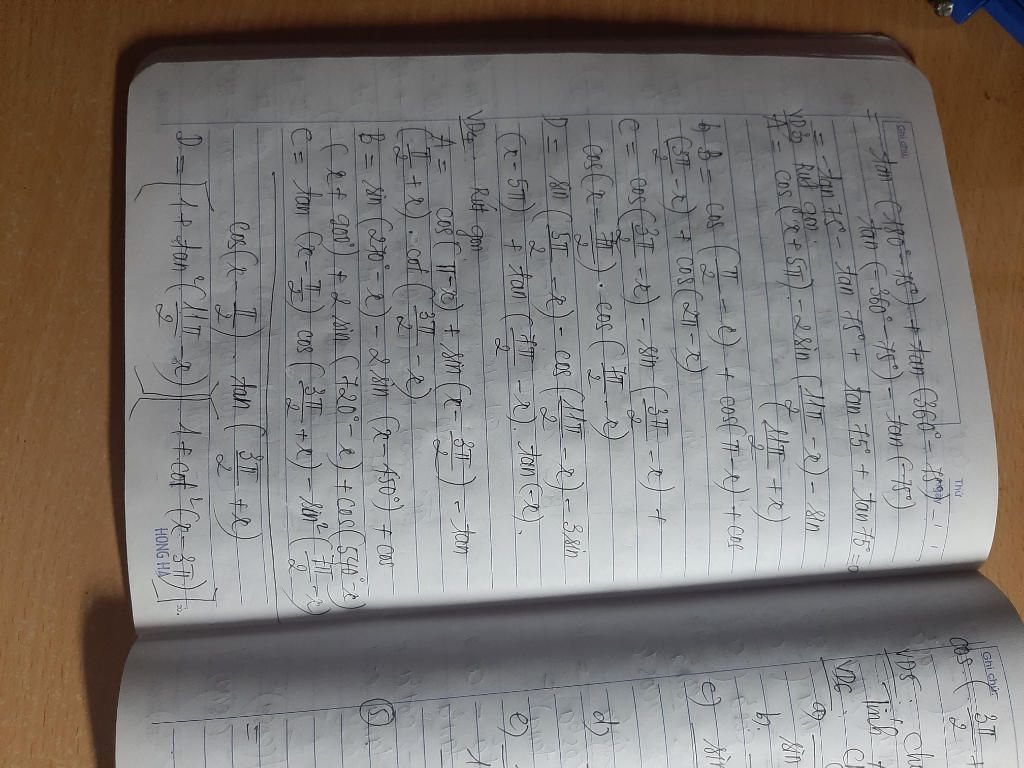 Ghi chú
Thứ
Ngày
= tan (180° - 75°) + tan (360° - 75°) -
tan (-360° - 75°) - tan (-75°)
= - tan 75° - tan 75° + tan 75° + tan 75° = 0
VD3 Rút gọn:
A = cos (x + 5π) - 2sin (11π/2 - x) - sin
(11π/2 + x)
b, B = cos (π/2 - x) + cos (π - x) + cos
(3π/2 - x) + cos (2π - x)
C = cos (3π/2 - x) - sin (3π/2 - x) +
cos (x - π/2) . cos (7π/2 - x)
D = sin (5π/2 - x) - cos (11π/2 - x) - 3 sin
(x - 5π) + tan (7π/2 - x) . tan (-x).
VD4 Rút gọn
A = cos (π - x) + sin (x - 3π/2) - tan
(π/2 + x) . cot (3π/2 - x)
B = sin (270° - x) - 2 sin (x - 450°) + cos
(x + 900°) + 2 sin (720° - x) + cos (540° - x)
C = tan (x - π/2) cos (3π/2 + x) - sin² (7π/2 - x)
cos (x - π/2) . tan (3π/2 + x)
D = [1 + tan² (11π/2 - x)] [1 + cot² (x - 3π)]
HỒNG HÀ
Ghi chú
cos (3π/2 +
VD5: Ch
Tính
VD6 Ch
a, sin
b,
c) sin
d)
e)
⑤
=